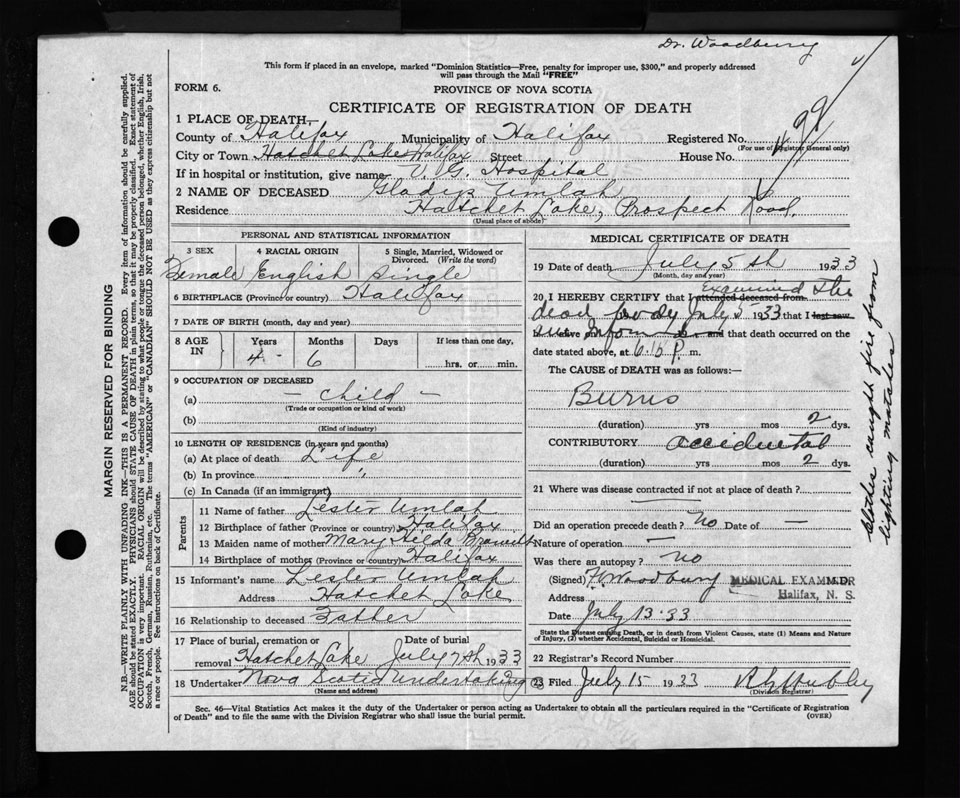 Dr. Woodbury
This form if placed in an envelope, marked "Dominion Statistics—Free, penalty for improper use, $300," and properly addressed
will pass through the Mail "FREE"
FORM 6.
PROVINCE OF NOVA SCOTIA
CERTIFICATE OF REGISTRATION OF DEATH
1 PLACE OF DEATH—
County of Halifax Municipality of Halifax Registered No.
(For use of Registrar General only)
City or Town Hatchet Lake Halifax Street House No.
If in hospital or institution, give name V. G. Hospital
2 NAME OF DECEASED Gladys Umlah
Residence Hatchet Lake, Prospect Road.
(Usual place of abode)
PERSONAL AND STATISTICAL INFORMATION
3 SEX 4 RACIAL ORIGIN 5 Single, Married, Widowed or
Divorced. (Write the word)
Female English Single
6 BIRTHPLACE (Province or country) Halifax
7 DATE OF BIRTH (month, day and year)
8 AGE IN Years Months Days If less than one day,
4 - 6 hrs. or min.
9 OCCUPATION OF DECEASED
(a) — child —
(Trade or occupation or kind of work)
(b)
(Kind of industry)
10 LENGTH OF RESIDENCE (in years and months)
(a) At place of death Life
(b) In province
(c) In Canada (if an immigrant)
Parents
11 Name of father Lester Umlah
12 Birthplace of father (Province or country) Halifax
13 Maiden name of mother Mary Hilda
14 Birthplace of mother (Province or country) Halifax
15 Informant's name Lester Umlah
Address Hatchet Lake
16 Relationship to deceased Father
17 Place of burial, cremation or Date of burial
removal Hatchet Lake July 7th 1933
18 Undertaker Nova Scotia Undertaking
(Name and address)
MEDICAL CERTIFICATE OF DEATH
19 Date of death July 5th 1933
(Month, day and year)
20 I HEREBY CERTIFY that I attended deceased from Examined the
dead body July 5 1933 that I last saw
and that death occurred on the
date stated above, at 6.15 P. m.
The CAUSE of DEATH was as follows:
Burns
(duration) yrs mos 2 dys.
CONTRIBUTORY accidental
(duration) yrs mos 2 dys.
21 Where was disease contracted if not at place of death?
Did an operation precede death? No Date of —
Nature of operation —
Was there an autopsy? No
(Signed) Woodbury MEDICAL EXAMINER
Address Halifax, N. S.
Date July 13 33
State the Disease causing Death, or in death from Violent Causes, state (1) Means and Nature
of Injury, (2) whether Accidental, Suicidal or Homicidal.
22 Registrar's Record Number
23 Filed July 15 1933
(Division Registrar)
Clothes caught fire from
lighting matches
Sec. 46—Vital Statistics Act makes it the duty of the Undertaker or person acting as Undertaker to obtain all the particulars required in the "Certificate of Registration
of Death" and to file the same with the Division Registrar who shall issue the burial permit.
(OVER)
MARGIN RESERVED FOR BINDING
N.B.—WRITE PLAINLY WITH UNFADING INK—THIS IS A PERMANENT RECORD. Every item of information should be carefully supplied.
AGE should be stated EXACTLY. PHYSICIANS should STATE CAUSE OF DEATH in plain terms, so that it may be properly classified. Exact statement of
OCCUPATION is very important. RACIAL ORIGIN will be described by stating to what people or tongue the deceased person belonged, whether English, Irish,
Scotch, French, German, Russian, Ruthenian, etc. The terms "AMERICAN" or "CANADIAN" SHOULD NOT BE USED as they express citizenship but not
a race or people. See instructions on back of Certificate.